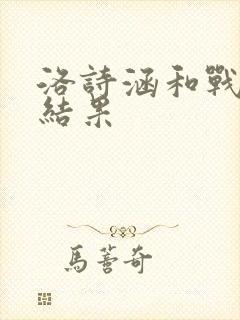 洛詩涵和戰
結果
馬薈奇